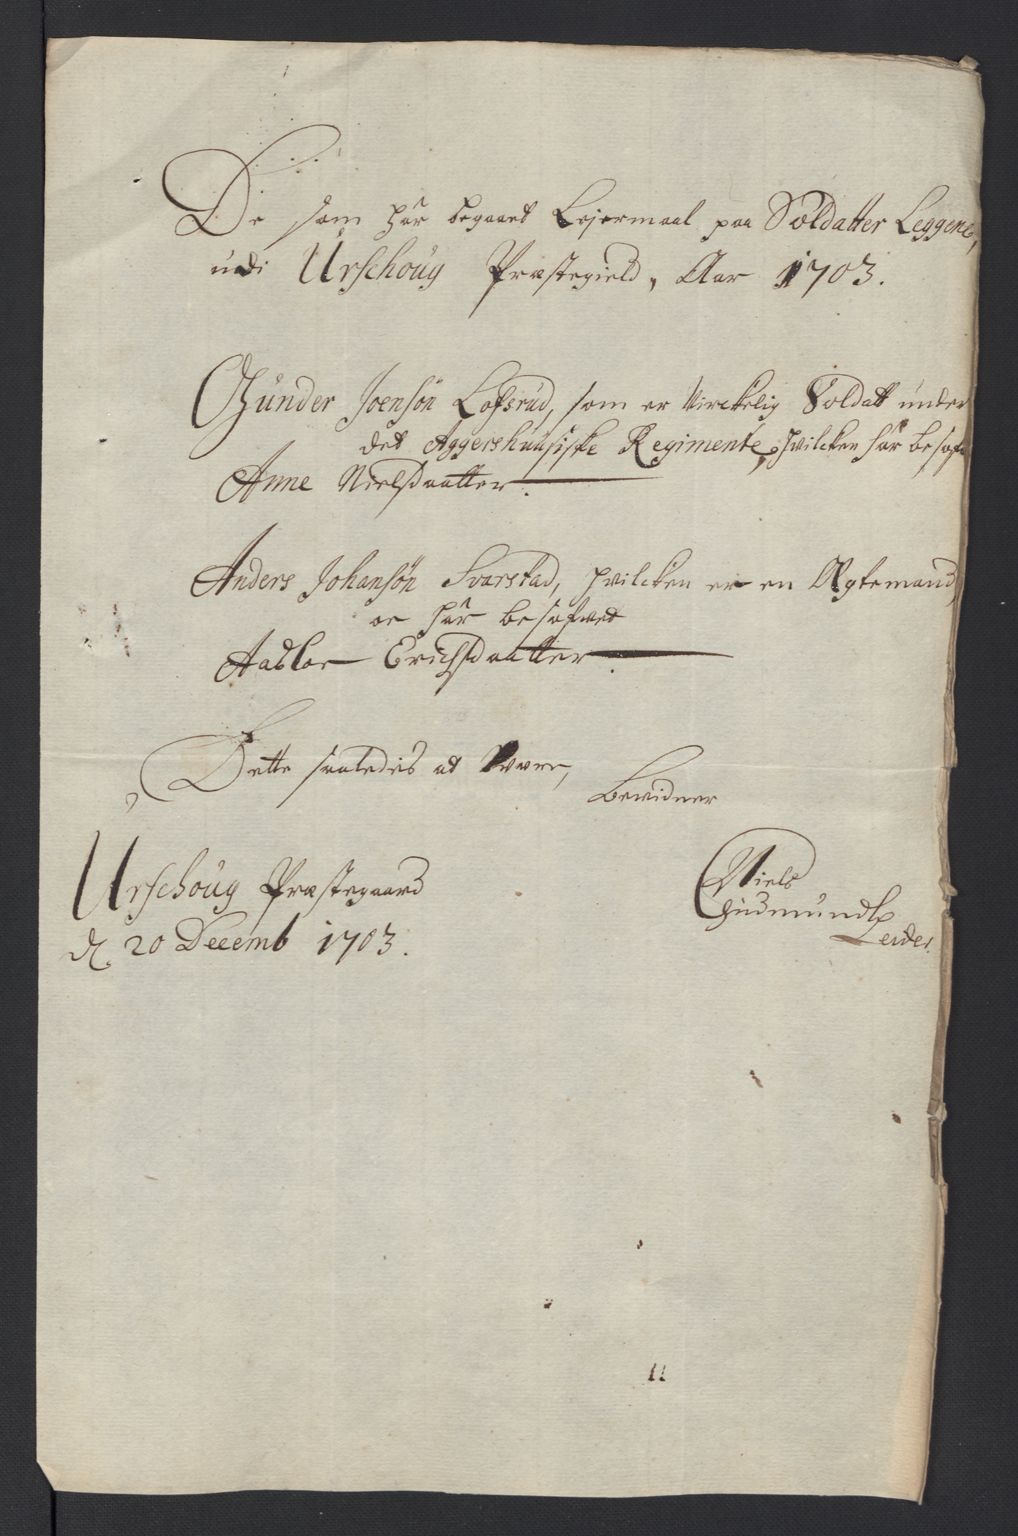 De som har begaaet Lejermaal paa Soldatter Leggene,
udi Urschoug Præstegield, Aar 1703.
Gunder Joensøn Lofsrud, som er Virckelig Soldatt under
det Aggershuusiske Regimente, hvilcken har besof
Anne Nielsdaatter.
Anders Johansøn Svarstad, hvilcken er en Ægtemand,
oc har besofvet
Erichsdaatter.
Dette saaledis at Være,
Bevidner
Urschoug Præstegaard
d. 20 Decemb 1703.
Niels
Gudmunds